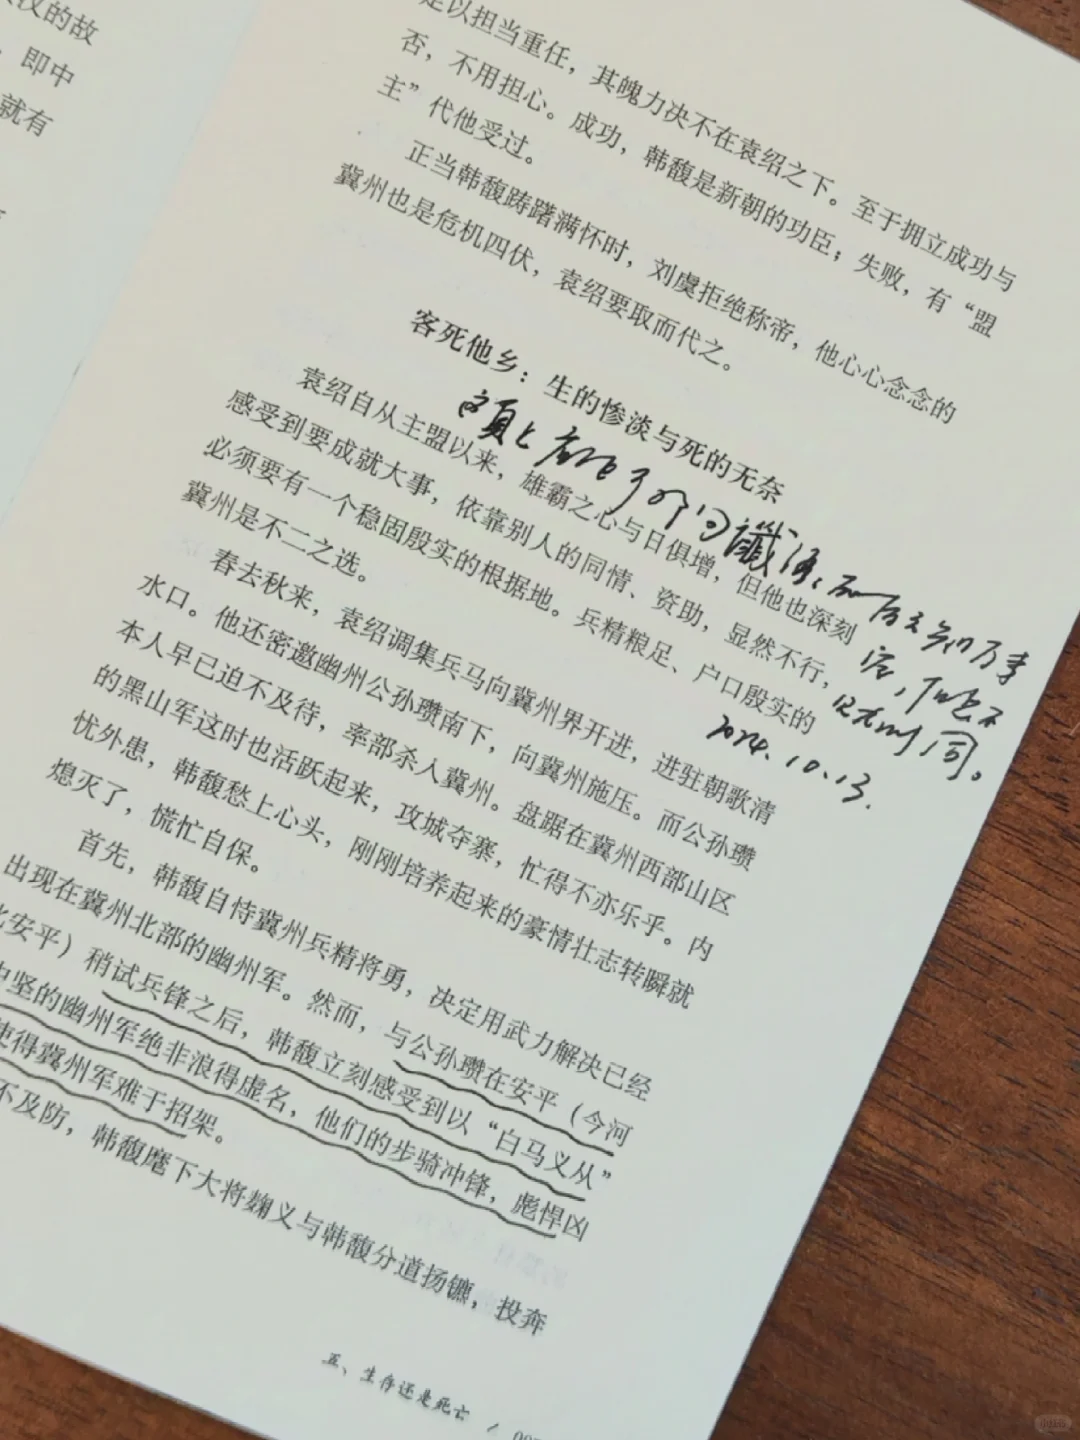 汉的故
，即中
就有
足以担当重任，其魄力决不在袁绍之下。至于拥立成功与
否，不用担心。成功，韩馥是新朝的功臣；失败，有“盟
主”代他受过。
正当韩馥踌躇满怀时，刘虞拒绝称帝，他心心念念的
冀州也是危机四伏，袁绍要取而代之。
客死他乡：生的惨淡与死的无奈
袁绍自从主盟以来，雄霸之心与日俱增，但他也深刻
感受到要成就大事，依靠别人的同情、资助，显然不行，
必须要有一个稳固殷实的根据地。兵精粮足、户口殷实的
冀州是不二之选。
2024.10.13.
春去秋来，袁绍调集兵马向冀州界开进，进驻朝歌清
水口。他还密邀幽州公孙瓒南下，向冀州施压。而公孙瓒
本人早已迫不及待，率部杀入冀州。盘踞在冀州西部山区
的黑山军这时也活跃起来，攻城夺寨，忙得不亦乐乎。内
忧外患，韩馥愁上心头，刚刚培养起来的豪情壮志转瞬就
熄灭了，慌忙自保。
首先，韩馥自恃冀州兵精将勇，决定用武力解决已经
出现在冀州北部的幽州军。然而，与公孙瓒在安平（今河
北安平）稍试兵锋之后，韩馥立刻感受到以“白马义从”
中坚的幽州军绝非浪得虚名，他们的步骑冲锋，彪悍凶
使得冀州军难于招架。
不及防，韩馥麾下大将麹义与韩馥分道扬镳，投奔
五、生存还是死亡 /